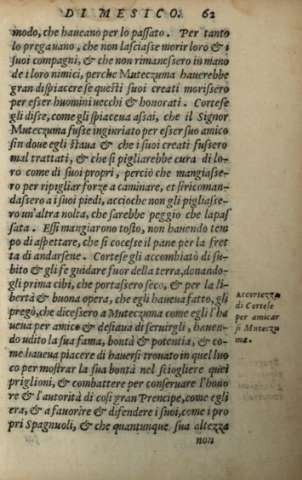 DI MESICO. 62
modo, che haueano per lo passato. Per tanto
lo pregauano, che non lasciasse morir loro & i
suoi compagni, & che non rimanessero in mano
de i loro nimici, perche Muteczuma hauerebbe
gran dispiacere se questi suoi creati morissero
per esser huomini uecchi & honorati. Cortese
gli disse, come gli spiaceua assai, che il Signor
Muteczuma fusse ingiuriato per esser suo amico
sin doue egli staua & che i suoi creati fussero
mal trattati, & che si pigliarebbe cura di lo-
ro come di suoi propri, perciò che mangiasse-
ro per ripigliar forze a caminare, et si ricoman-
dassero a i suoi piedi, accioche non gli pigliasse-
ro un'altra nolta, che sarebbe peggio che la pas
sata. Essi mangiarono tosto, non hauendo tem
po di aspettare, che si cocesse il pane per la fret
ta di andarsene. Cortese gli accombiatò di su-
bito & gli fe guidare fuor della terra, donando-
gli prima cibi, che portassero seco, & per la li-
bertà & buona opera, che egli haueua fatto, gli
pregò, che dicessero a Muteczuma come egli l'ha
ueua per amico & desiaua di seruirgli, hauen-
do udito la sua fama, bontà & potentia, & co-
me haueua piacere di hauersi trouato in quel luo
co per mostrar la sua bontà nel sciogliere quei
priglioni, & combattere per conseruare l'hono
re & l'autorità di cosi gran Prencipe, come egli
era, & a fauorire & difendere i suoi, come i pro
pri Spagnuoli, & che quantunque sua altezza
non
Accortezza
di Cortese
per amicar
si Muteczu
ma.